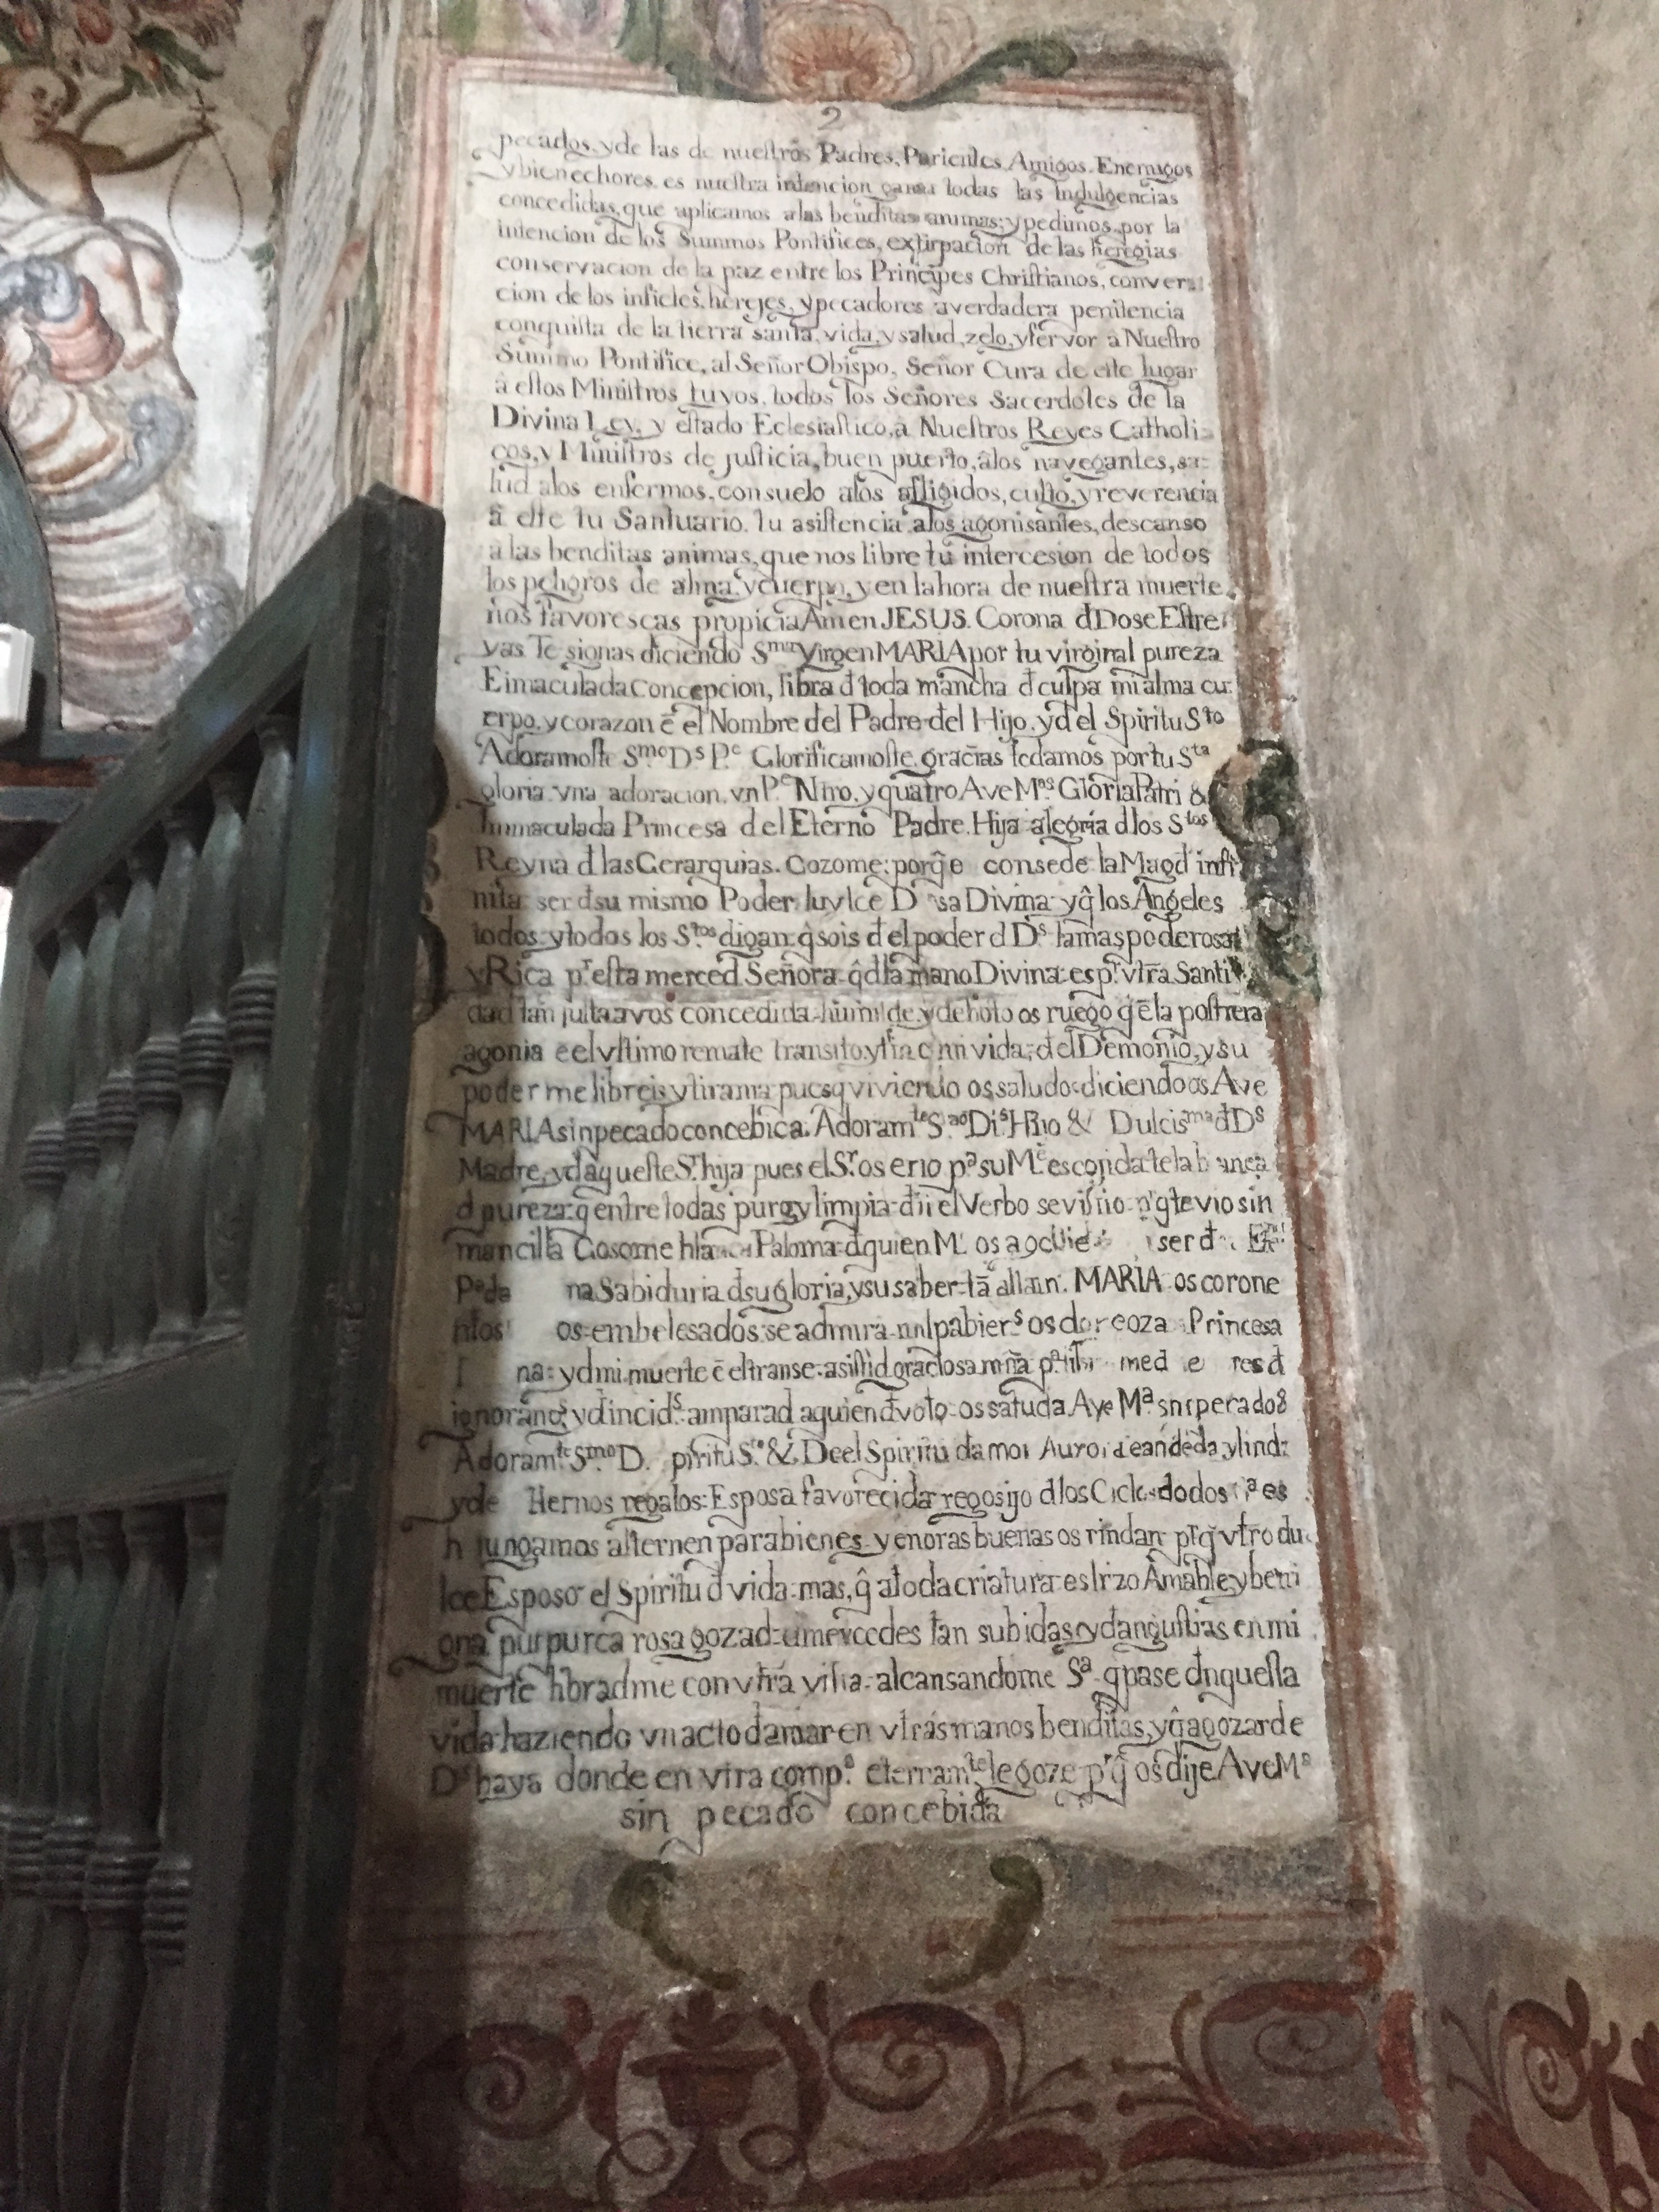 2
pecados, y de las de nuestros Padres, Parientes, Amigos, Enemigos
y bienechores, es nuestra intencion ganar todas las Indulgencias
concedidas, que aplicamos a las benditas animas; y pedimos, por la
intencion de los Summos Pontifices, extirpacion de las heregias
conservacion de la paz entre los Principes Christianos, conver
cion de los infieles, herejes, y pecadores a verdadera penitencia
conquista de la tierra santa, vida, y salud, zelo, y fervor â Nuestro
Summo Pontifice, al Señor Obispo, Señor Cura de este lugar
â estos Ministros tuyos, todos los Señores Sacerdotes de la
Divina Ley, y estado Eclesiastico, â Nuestros Reyes Catholi-
cos, y Ministros de justicia, buen puerto, âlos navegantes, sa-
lud alos enfermos, consuelo alos afligidos, culto, y reverencia
â este tu Santuario, tu asistencia alos agonisantes, descanso
a las benditas animas, que nos libre tu intercesion de todos
los peligros de alma y cuerpo, y en la hora de nuestra muerte
nos favorescas propicia Amen JESUS. Corona đ Dose Estre
yas Te signas diciendo Sma Virgen MARIA por tu virginal pureza
E imaculada Concepcion, libra đ toda mancha đ culpa mi alma cu
erpo, y corazon ē el Nombre del Padre del Hijo, y đel Spiritu Sto
Adoramoste Smo Ds Pe Glorificamoste, gracias te damos por tu Sta
gloria. vna adoracion, vn Pe Ntro, y quatro Ave Mas Gloria Patri &
Immaculada Princesa del Eterno Padre. Hija alegria đ los Stos
Reyna đ las Gerarquias. Gozome: porq̂e consede la Magđ infi
nita: ser đ su mismo Poder D sa Divina: y q̂ los Ângeles
todos: y todos los Stos digan: q̂ sois đ el poder đ Ds la mas poderosa
y Rica pr esta merced Señora q̂ đ la mano Divina: es pr vtra Santi
dad tan justa a vos concedida humilde, y deboto os ruego q̂ ē la postrera
agonia e el vltimo remate transito, y fin mi vida; đ el Demonio, y su
poder me libreis y tirania pues q viviendo os saludo: diciendo os Ave
MARIA sin pecado concebida. Adoramte S Dis Hijo & Dulcisma đ Ds
Madre, y đ aqueste Sr hija pues el Sr os pa su Me escojida
đ pureza: q̂ entre todas pura, y limpia: el Verbo se vistio q te vio sin
mancilla Gosome blanca Paloma: đ quien Me os ser đ
na Sabiduria đ su gloria, y su saber tā MARIA os corone
os: embelesados: se admira os Princesa
na: y đ mi muerte ē el transe: asistid graciosa med e res đ
y đ amparad a quien đ voto os saluda Ave Ma sin pecado &
Adoramte Smo D. piritu Sto & De el Spiritu đ amor Aurora y linda
y de regalos: Esposa favorecida: regosijo đ los es
alternen parabienes y enoras buenas os rindan prq̂ vtro du
lce Esposo el Spiritu đ vida: mas, q̂ a toda criatura: es hizo Amable, y beni
gna purpurea rosa gozad mercedes tan subidas, y đ angustias en mi
muerte libradme con vtrā vista: alcansandome Sa q̂ pase đ aquesta
vida: haziendo vn acto đ amar en vtrās manos benditas, y q̂ a gozar de
Ds haya donde en vtra compa eternamte le goze prq̂ os dije Ave Ma
sin pecado concebida